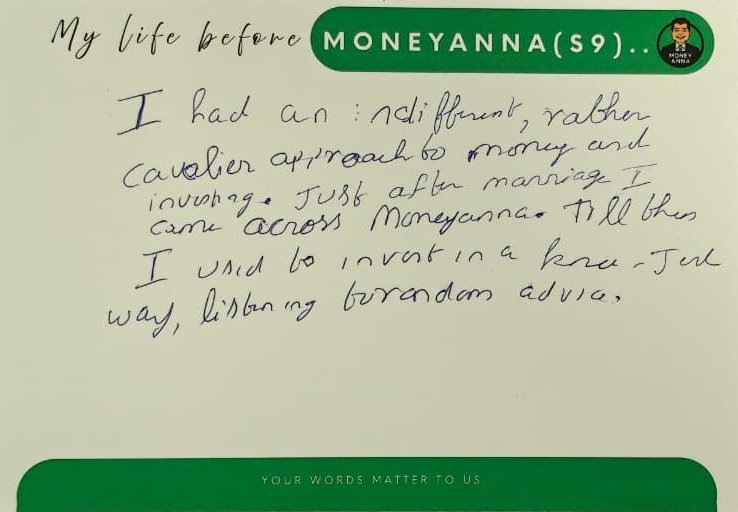 My life before MONEYANNA(S9)..
MONEY
ANNA
I had an indifferent, rather
cavalier approach to money and
investing. Just after marriage I
came across Moneyanna. Till then
I used to invest in a knee-Jerk
way, listening to random advice.
YOUR WORDS MATTER TO US